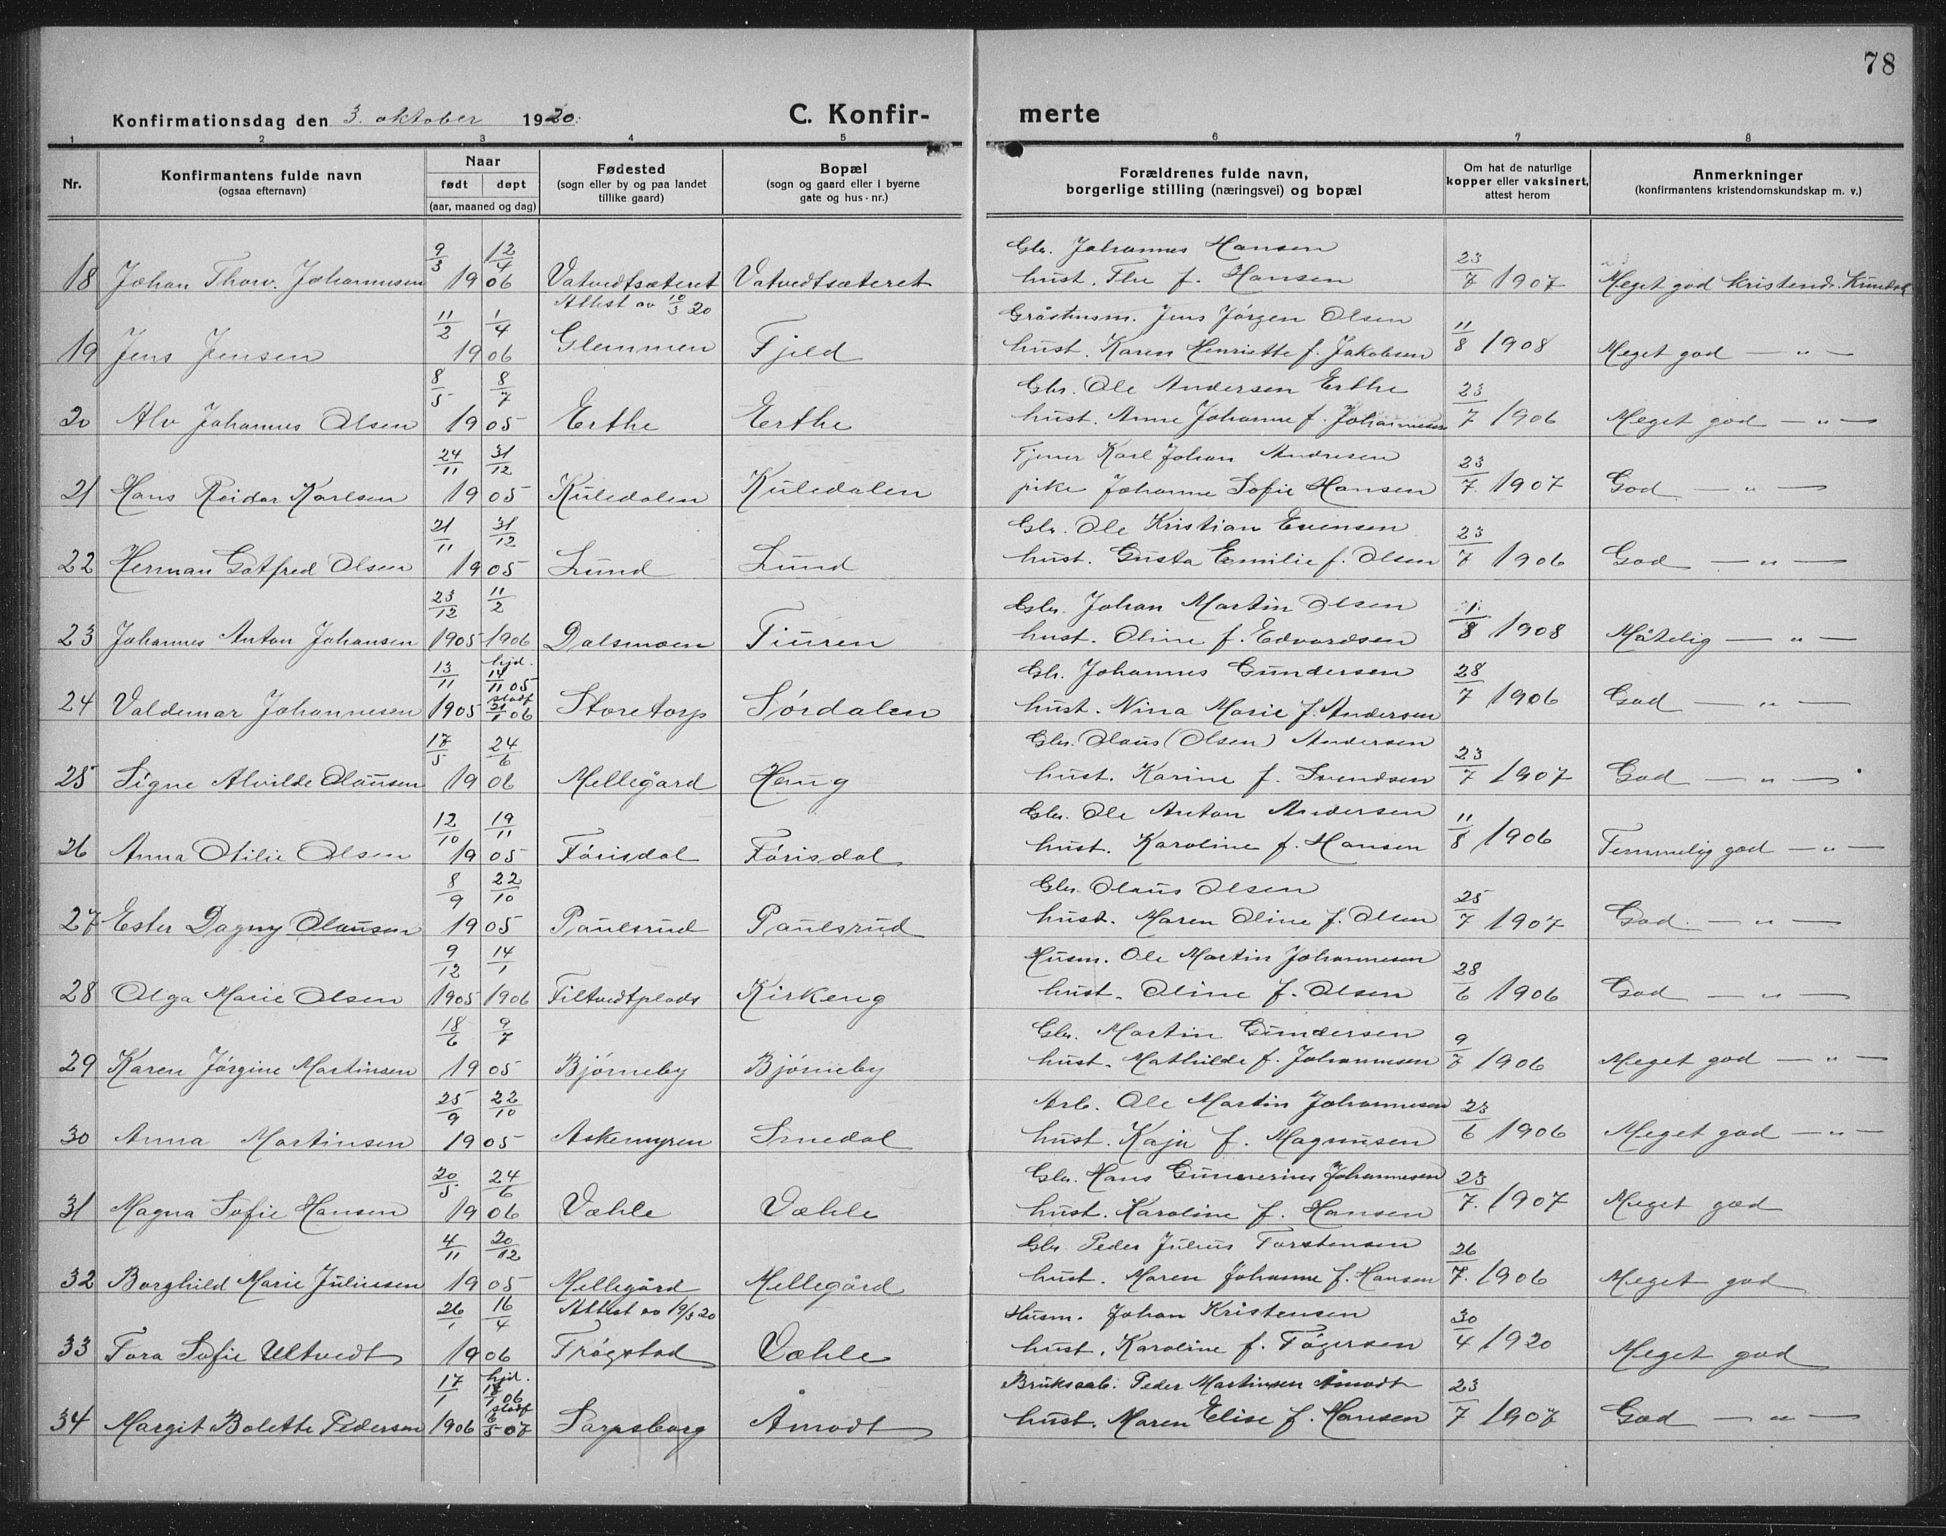 78
Konfirmationsdag den 3. oktober 1920. C. Konfir- merte
1 2 3 4 5 6 7 8
Nr. Konfirmantens fulde navn (ogsaa efternavn) Naar født døpt (aar, maaned og dag) Fødested (sogn eller by og paa landet tillike gaard) Bopæl (sogn og gaard eller i byerne gate og hus-nr.) Forældrenes fulde navn, borgerlige stilling (næringsvei) og bopæl Om hat de naturlige kopper eller vaksinert, attest herom Anmerkninger (konfirmantens kristendomskundskap m. v.)
9/3 12/4 Gbr. Johannes Hansen 23/7 1907
18 Johan Thorv. Johannesen 1906 Vatvedtsæteret Vatvedtsæteret hust. f. Hansen Meget god Kristend. Kundsk
11/2 1/4 Attest av 10/3 20 Gråstensm. Jens Jørgen Olsen 11/8 1908
19 Jens Jensen 1906 Glemmen Fjeld hust. Karen Henriette f. Jakobsen Meget god — „ —
8/5 8/7 Gbr. Ole Andersen Erthe 23/7 1906
20 Alv Johannes Olsen 1905 Erthe Erthe hust. Anne Johanne f. Johannesen Meget god — „ —
24/11 31/12 Tjener Karl Johan Andresen 23/7. 1907
21 Hans Reidar Karlsen 1905 Kuledalen Kuledalen pike Johanne Sofie Hansen God — „ —
21/11 31/12 Gbr. Ole Kristian Evensen 23/7 1906
22 Herman Gotfred Olsen 1905 Lund Lund hust. Gusta Emilie f. Olsen God — „ —
23/12 11/2 Gbr. Johan Martin Olsen 1/8 1908
23 Johannes Anton Johansen 1905 1906 Dalsmoen Tiuren hust. Oline f. Edvardsen Måtelig — „ —
13/11 hjd. 14/11 05 Gbr. Johannes Gundersen 28/7 1906
24 Valdemar Johannesen 1905 stadf 21/1 06 Storetorp Sørdalen hust. Nina Marie f. Andersen God — „ —
17/5 24/6 Gbr. Olaus (Olsen) Andersen 23/7 1907
25 Signe Alvilde Olausen 1906 Mellegård Haug hust. Karine f. Svendsen God — „ —
12/10 19/11 Gbr. Ole Anton Andersen 11/8 1906
26 Anna Otilie Olsen 1905 Førisdal Førisdal hust. Karoline f. Hansen Temmelig god — „ —
8/9 22/10 Gbr. Olaus Olsen 25/7 1907
27 Ester Dagny Olausen 1905 Paulsrud Paulsrud hust. Maren Oline f. Olsen God — „ —
9/12 14/1 Husm. Ole Martin Johannesen 28/6 1906
28 Olga Marie Olsen 1905 1906 Tiltvedtplads Kirkeng hust. Oline f. Olsen God — „ —
18/6 9/7 Gbr. Martin Gundersen 9/7 1906
29 Karen Jørgine Martinsen 1905 Bjørneby Bjørneby hust. Mathilde f. Johannesen Meget god — „ —
25/9 22/10 Arb. Ole Martin Johannesen 23/6 1906
30 Anna Martinsen 1905 Askemyren Smedal hust. Kaja f. Magnusen Meget god — „ —
20/5 24/6 Gbr. Hans Gunerius Johannesen 23/7. 1907
31 Magna Sofie Hansen 1906 Væhle Væhle hust. Karoline f. Hansen Meget god
4/11 20/12 Gbr. Peder Julius Torstensen 26/7. 1906
32 Borghild Marie Juliusen 1905 Mellegård Mellegård hust. Maren Johanne f. Hansen Meget god
26/1 16/4 Attest av 19/3 20 Husm. Johan Kristensen 30/4 1920
33 Tora Sofie Ultvedt 1906 Trøgstad Væhle hust. Karoline f. Tøgersen Meget god
17/1 hjd. 17/1 06 Bruksarb. Peder Martinsen Åmodt 23/7 1907
34 Margit Bolette Pedersen 1906 stadf 6/5 07 Sarpsborg Åmodt hust. Maren Elise f. Hansen God — „ —